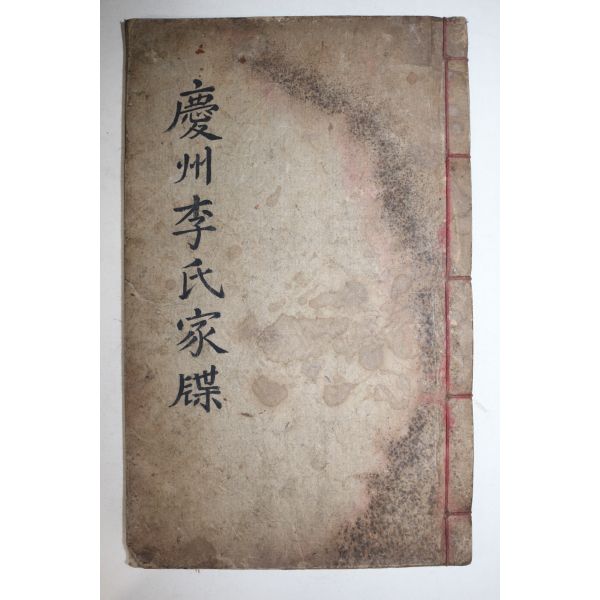 慶州李氏家牒